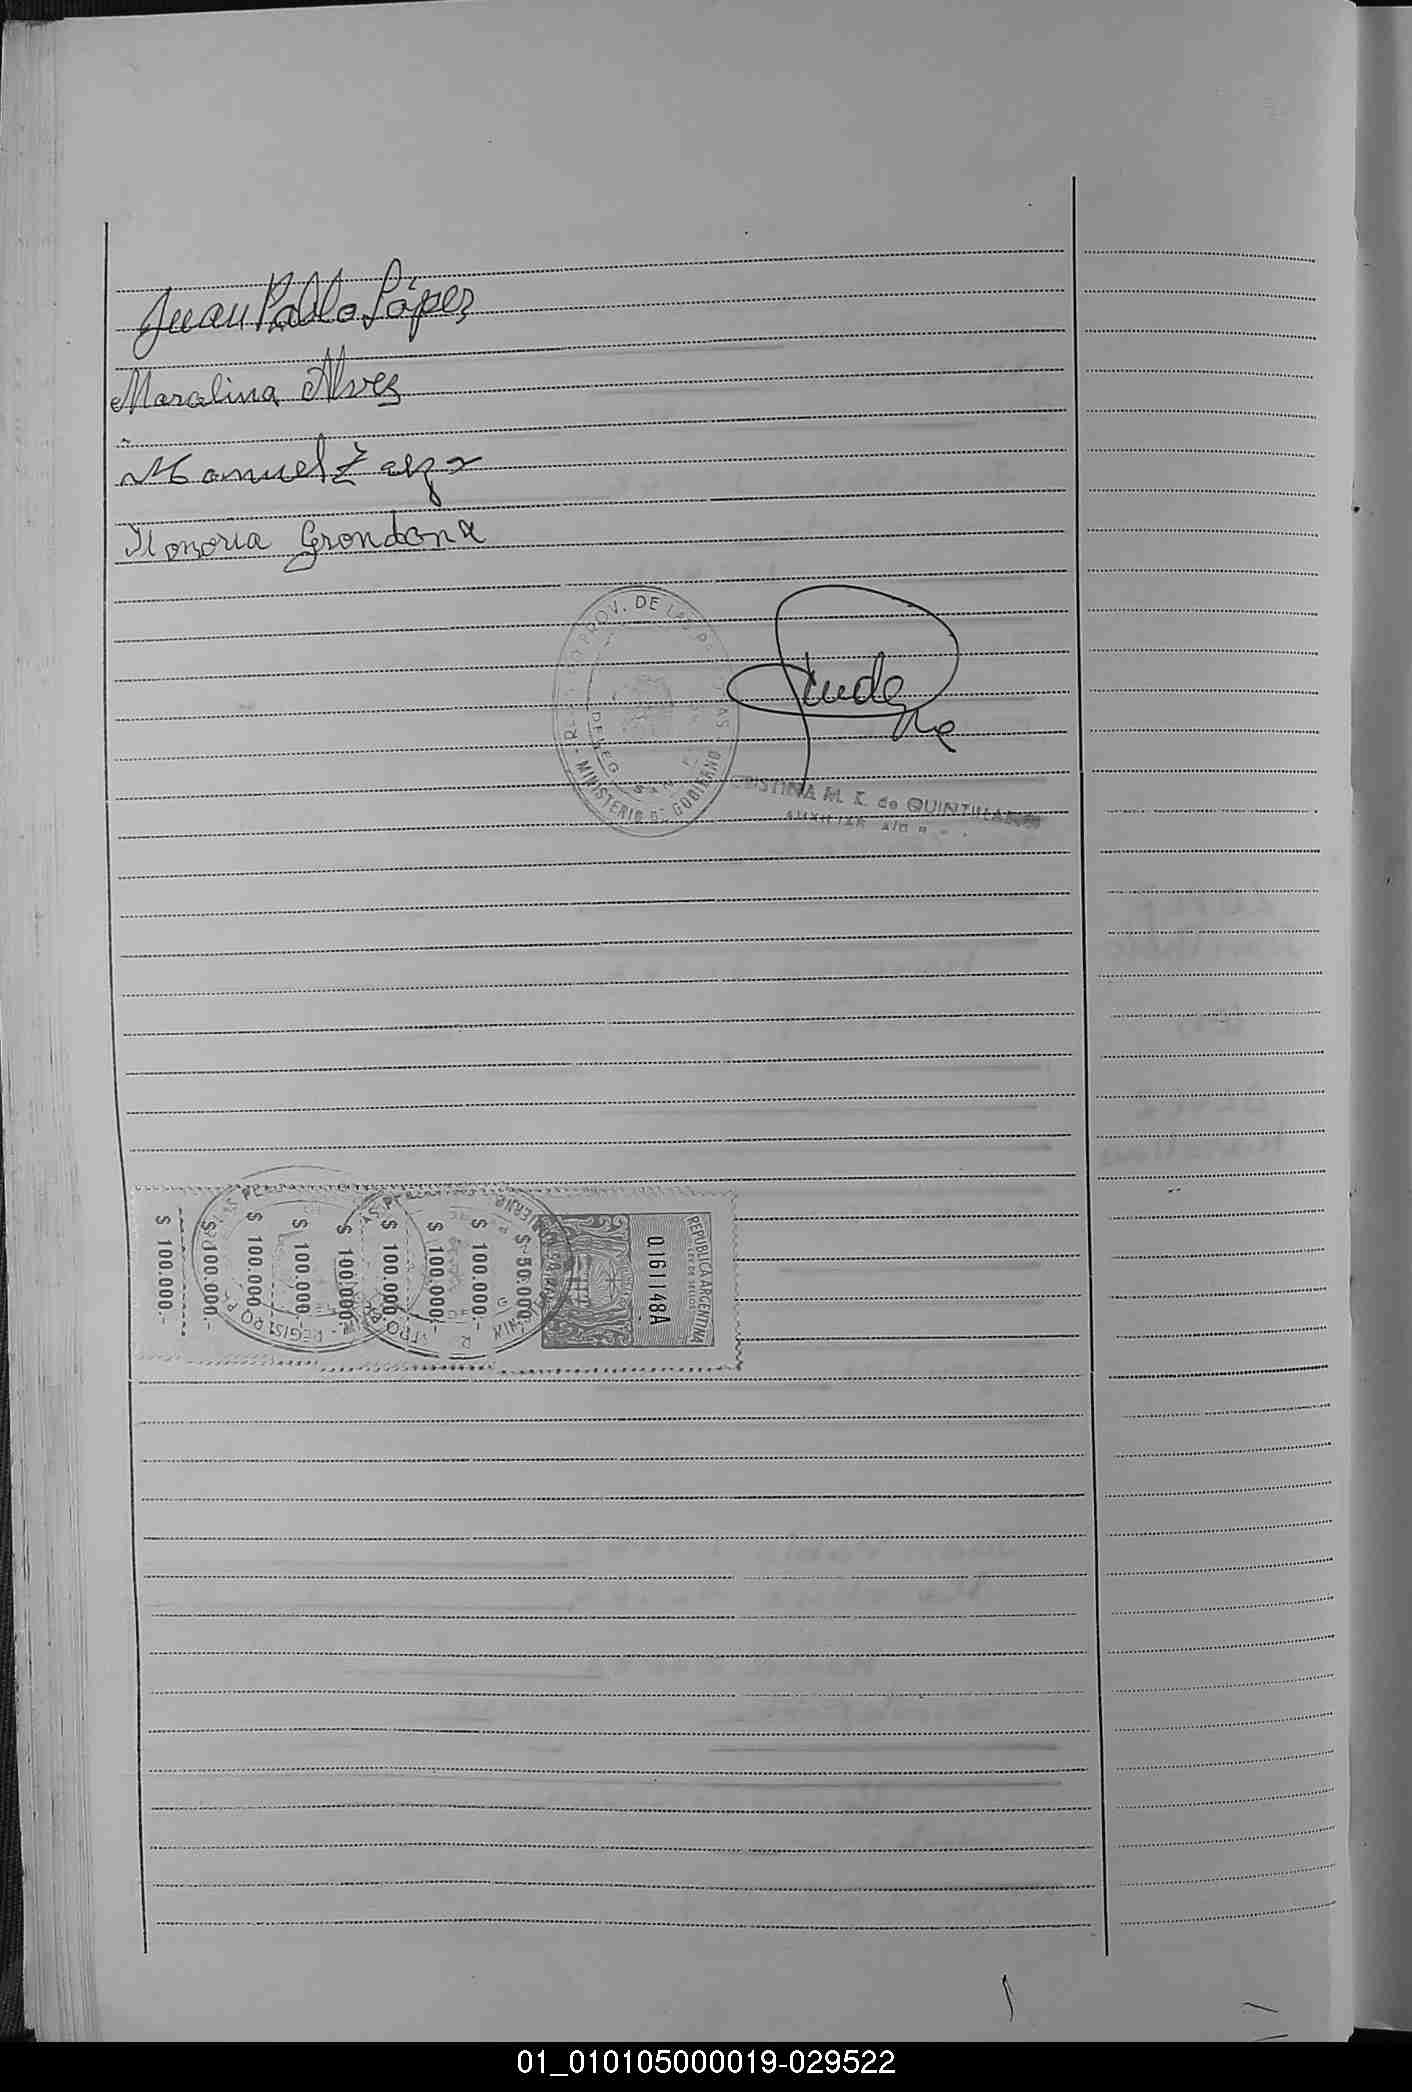 Juan Pablo López
Maralina Alvez
Manuel Zarza
Honoria Grondona
PROV. DE LAS
DELEG
MINISTERIO DE GOBIERNO
CRISTINA M. K. de QUINTULLABURU
AUXILIAR
REPUBLICA ARGENTINA
LEY DE SELLOS
Q.161148A
$ 50.000.-
$ 100.000.-
$ 100.000.-
$ 100.000.-
$ 100.000.-
$ 100.000.-
$ 100.000.-
$ 100.000.-
$ 100.000.-
REGISTRO
01_010105000019-029522